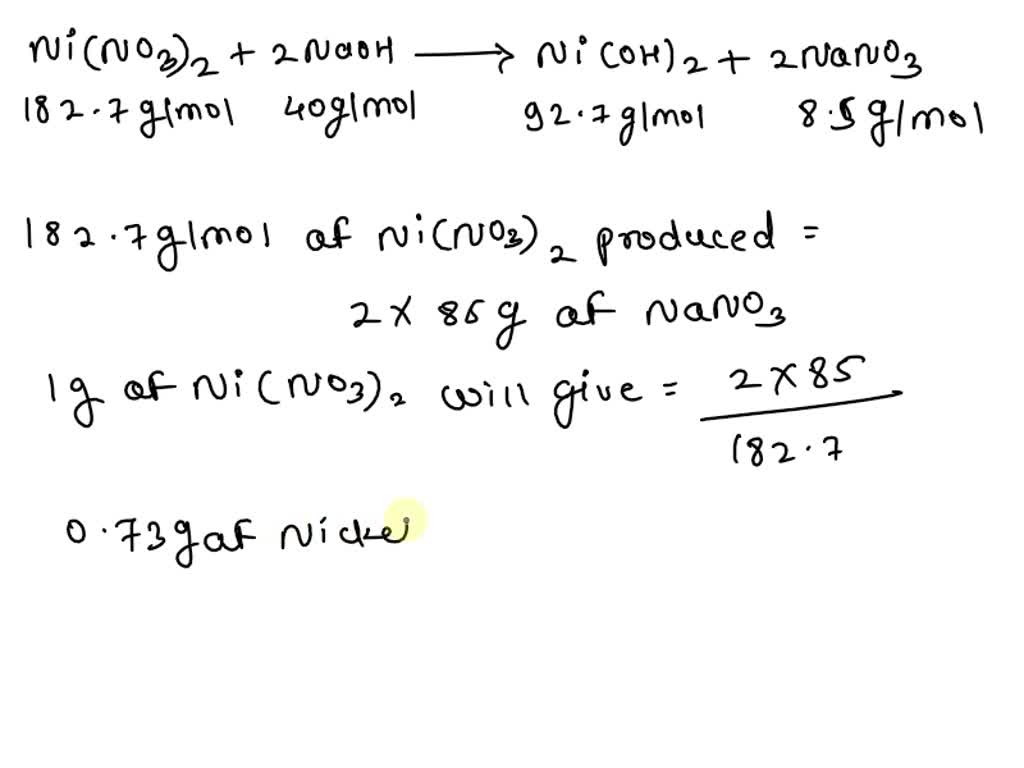 Ni(NO3)2 + 2NaOH ⟶ Ni(OH)2 + 2NaNO3
182.7 g/mol 40g/mol 92.7g/mol 8.5g/mol
182.7g/mol of Ni(NO3)2 produced =
2 × 85g of NaNO3
1g of Ni(NO3)2 will give = 2 × 85 / 182.7
0.73g of Nicke